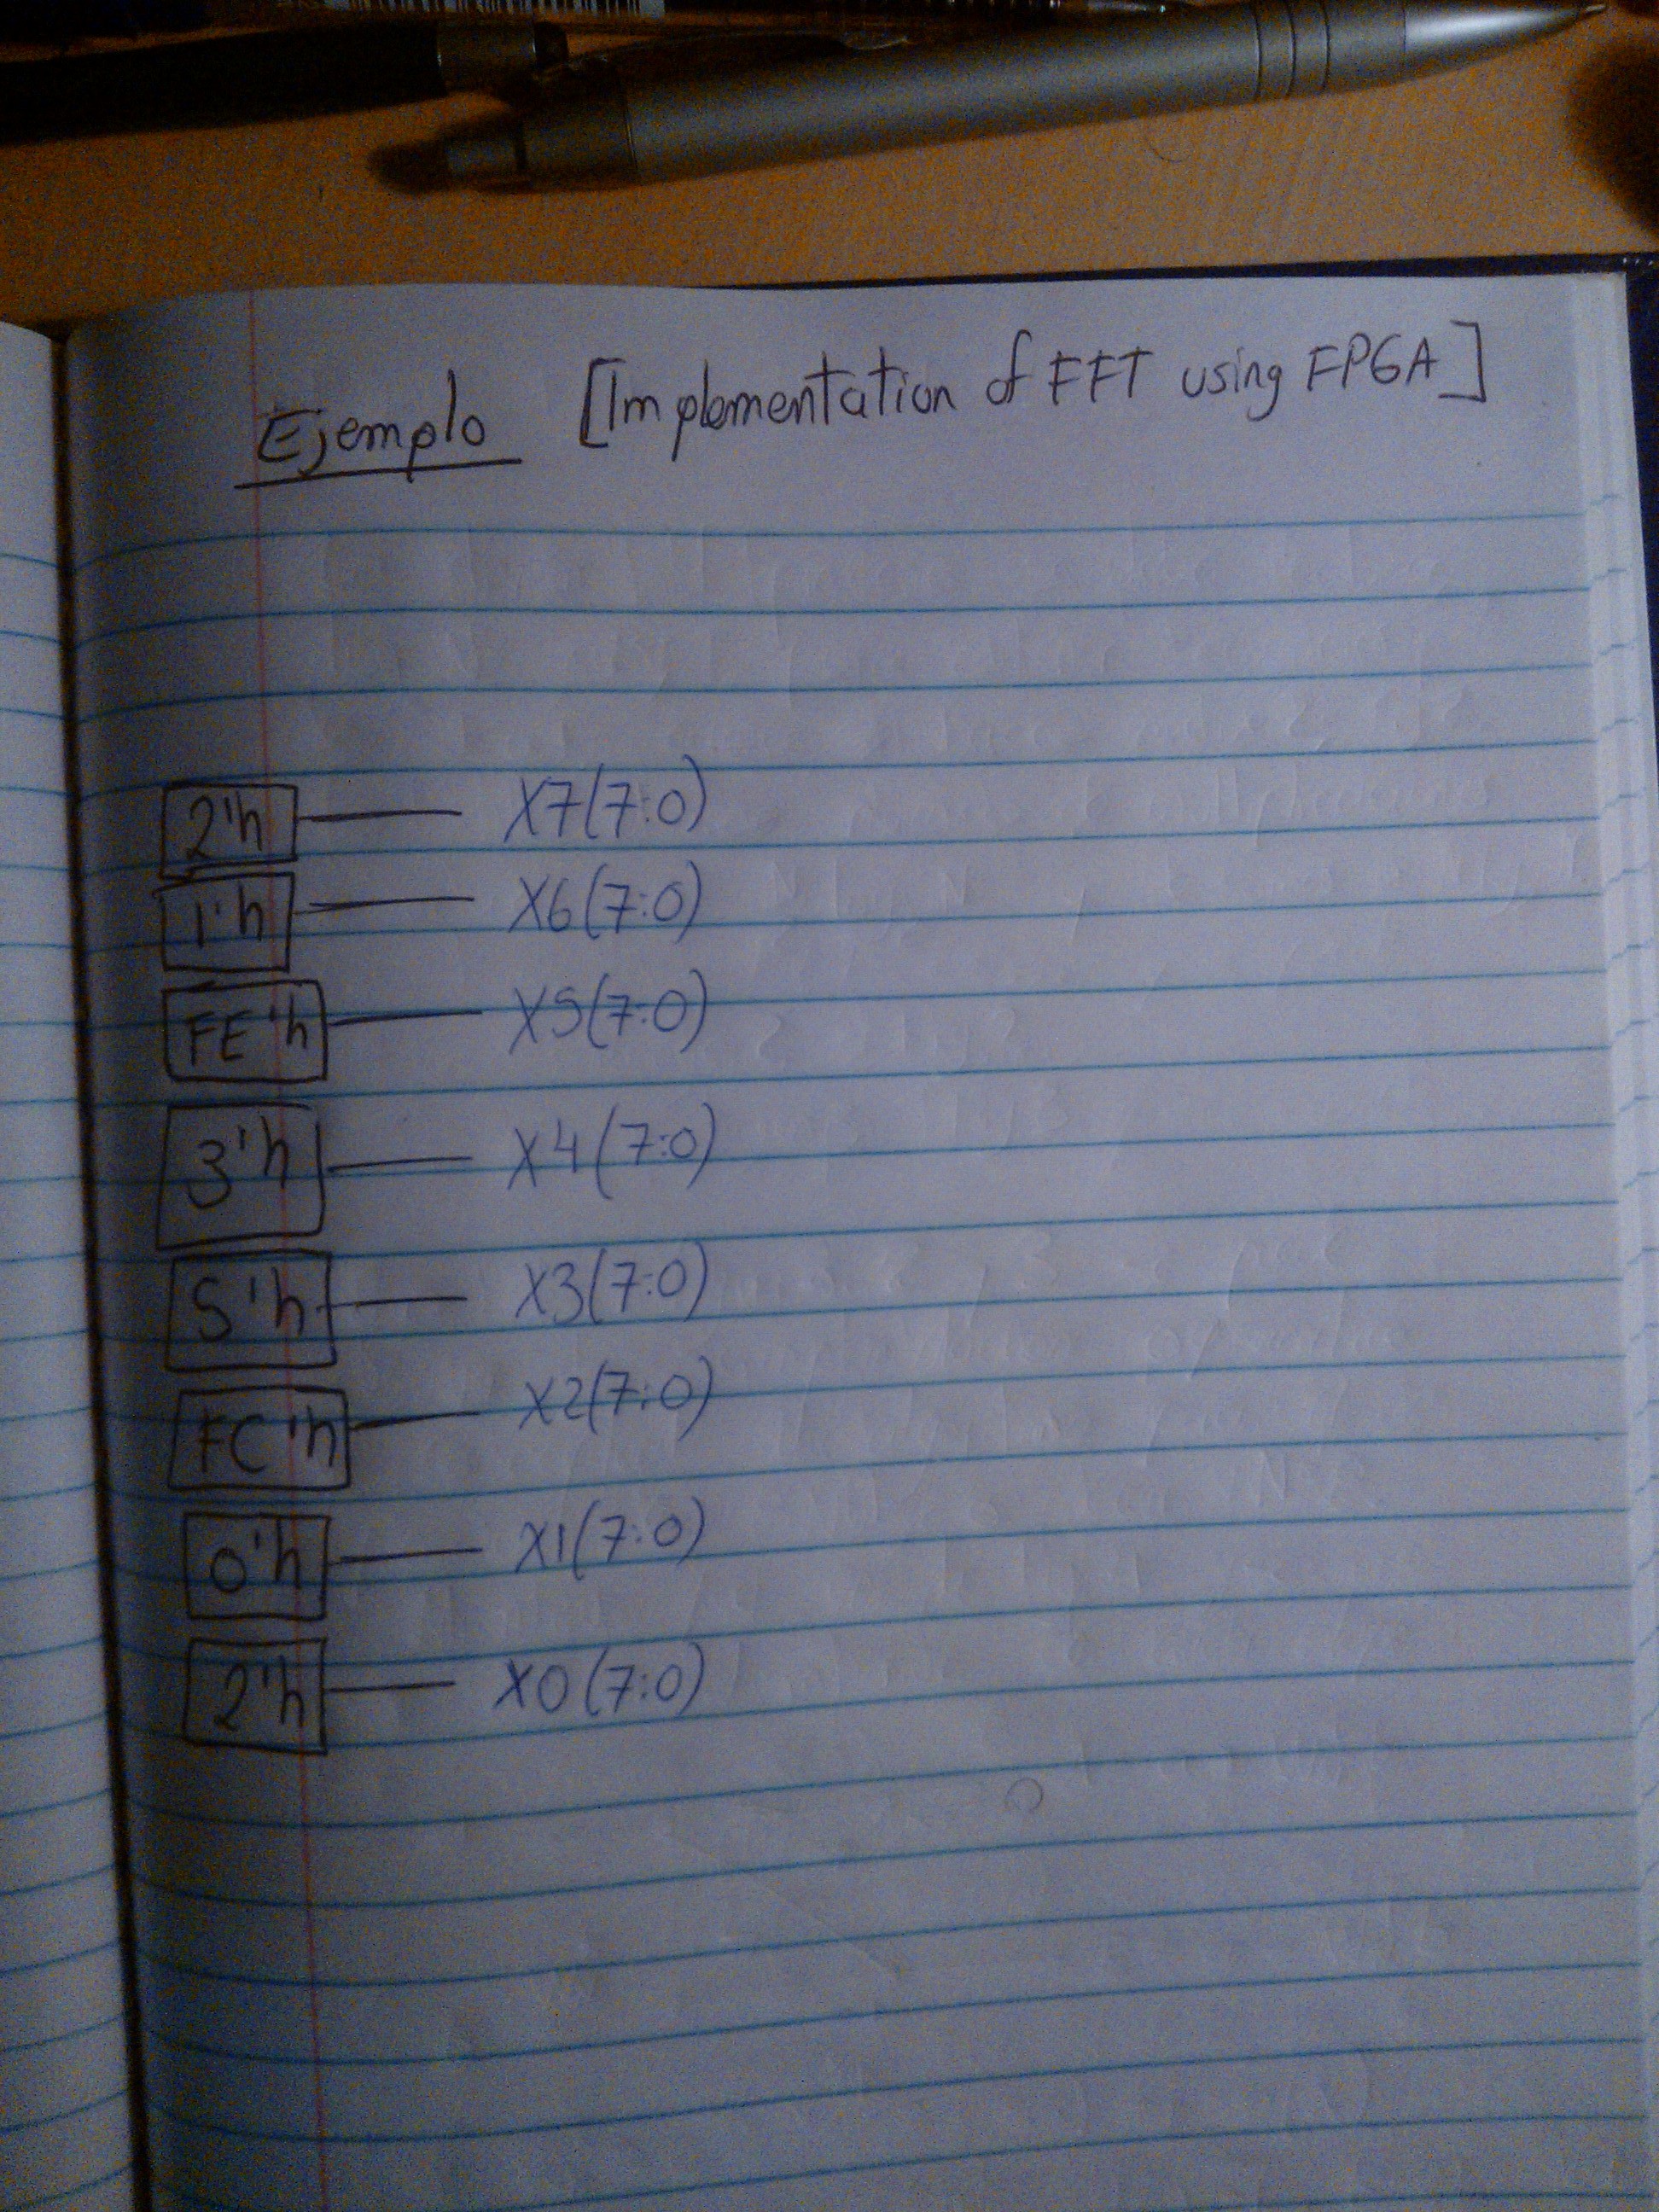 Ejemplo [Implementation of FFT using FPGA]
2'h X7(7:0)
1'h X6(7:0)
FE'h X5(7:0)
3'h X4(7:0)
5'h X3(7:0)
FC'h X2(7:0)
0'h X1(7:0)
2'h X0(7:0)